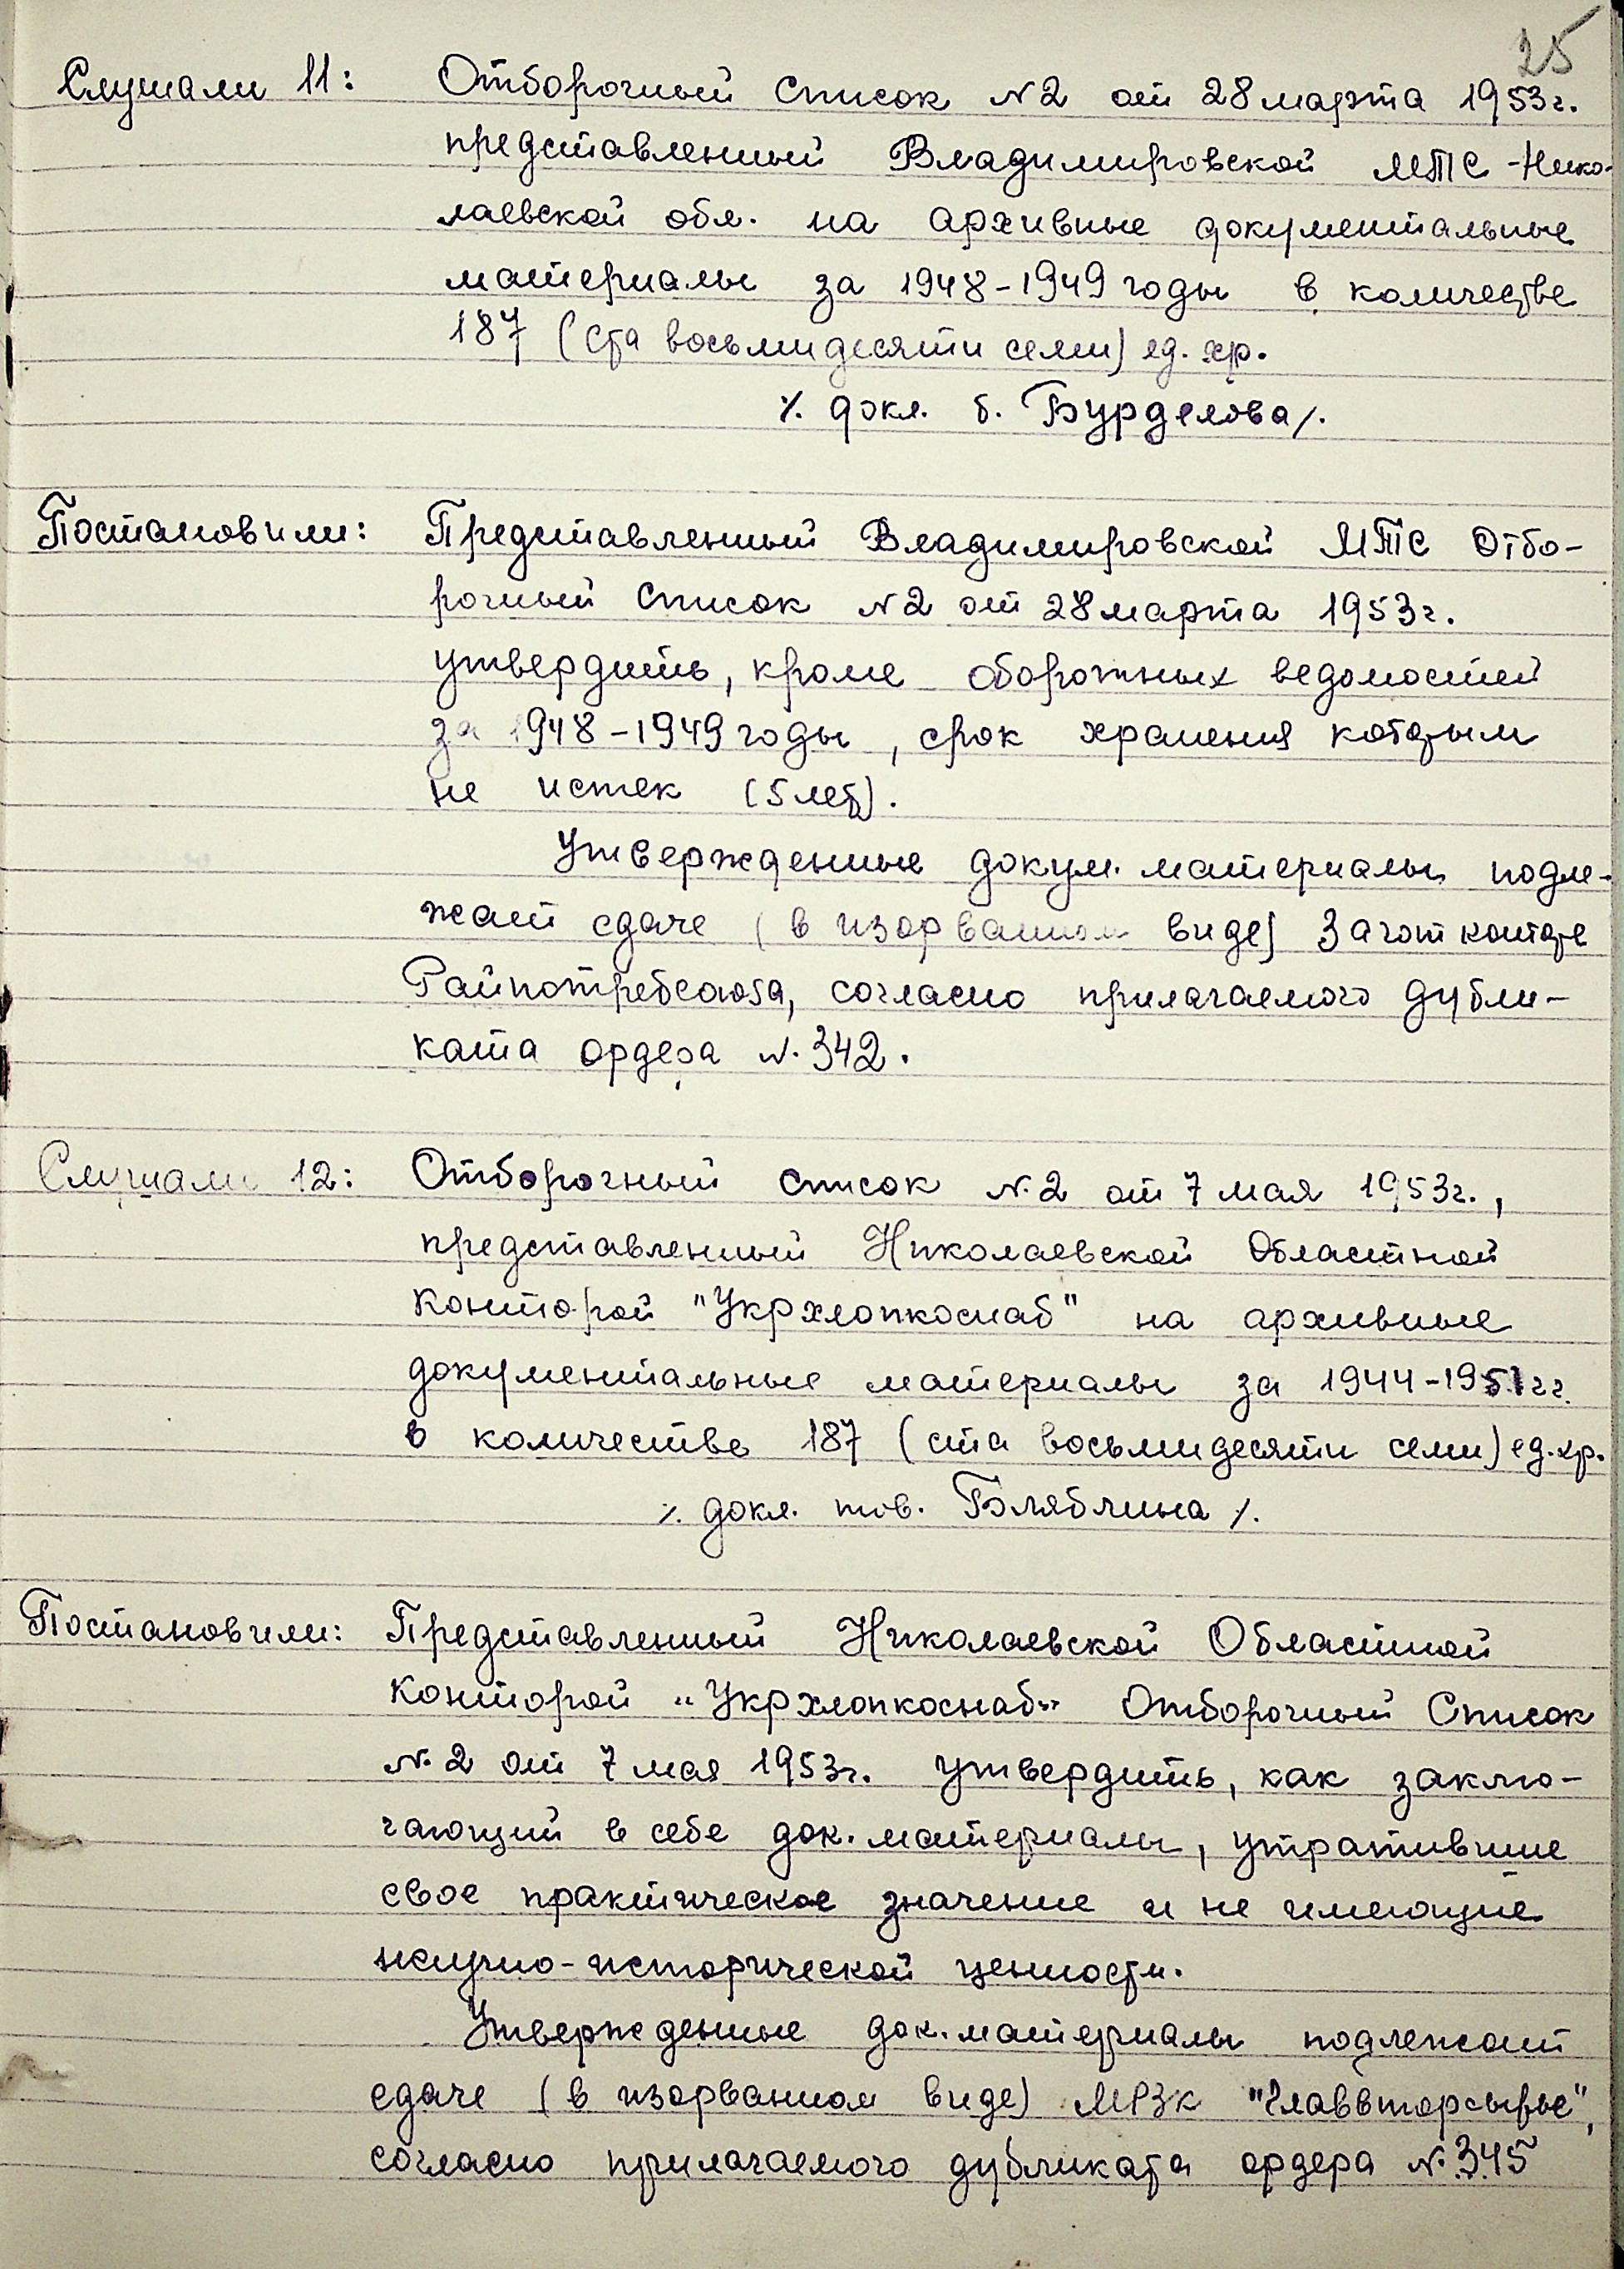 25
Слушали 11: Отборочный список №2 от 28 марта 1953г.
представленный Владимировской МТС -Нико-
лаевской обл. на архивные документальные
материалы за 1948-1949 годы в количестве
187 (ста восьмидесяти семи) ед. хр.
/. докл. б. Бурделова /.
Постановили: Представленный Владимировской МТС Отбо-
рочный список №2 от 28 марта 1953г.
утвердить, кроме оборотных ведомостей
за 1948-1949 годы, срок хранения которым
не истек (5 лет).
Утвержденные докум. материалы подле-
жат сдаче (в изорванном виде) Заготконторе
Райпотребсоюза, согласно прилагаемого дубли-
ката ордера №. 342.
Слушали 12: Отборочный список №.2 от 7 мая 1953г.,
представленный Николаевской Областной
Конторой "Укрхлопкоснаб" на архивные
документальные материалы за 1944-1951гг.
в количестве 187 (ста восьмидесяти семи) ед.хр.
/. докл. тов. Бляблина /.
Постановили: Представленный Николаевской Областной
Конторой „Укрхлопкоснаб" Отборочный Список
№.2 от 7 мая 1953г. утвердить, как заклю-
чающий в себе док. материалы, утратившие
свое практическое значение и не имеющие
научно-исторической ценности.
Утвержденные док. материалы подлежат
сдаче (в изорванном виде) МРЗК "Главвторсырье",
согласно прилагаемого дубликата ордера №.345